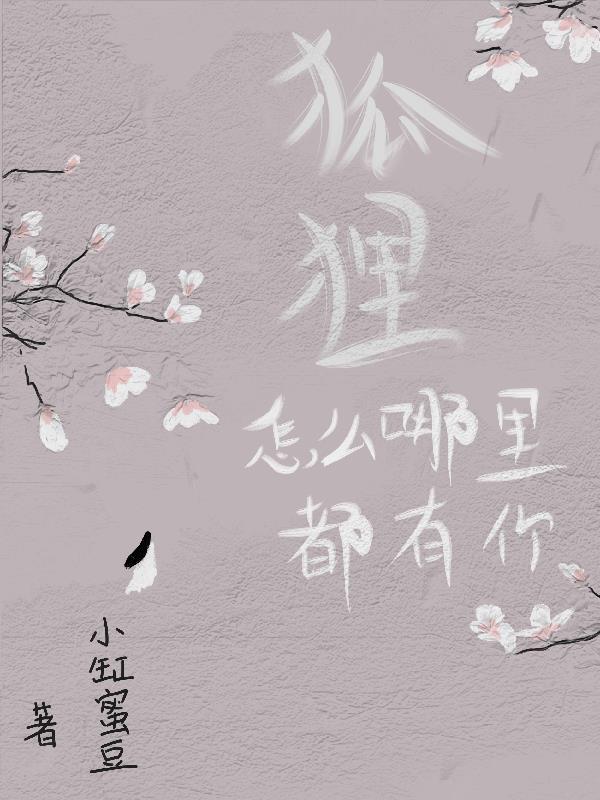 狐
狸
怎么哪里
都有你
小缸蜜豆
著